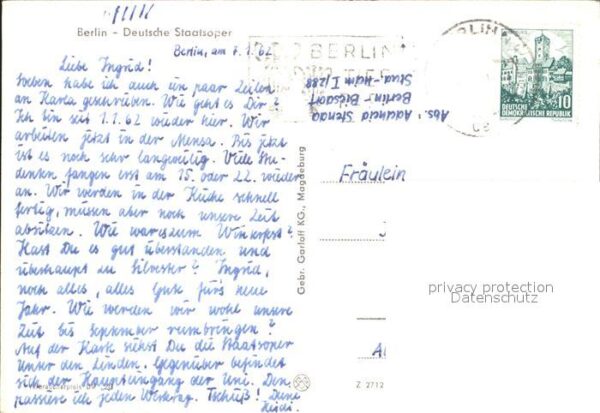 Berlin - Deutsche Staatsoper
Berlin, am 7.1.62
Liebe Ingrid!
Soeben habe ich auch ein paar Zeilen
an Karla geschrieben. Wie geht es Dir?
Ich bin seit 1.1.62 wieder hier. Wir
arbeiten jetzt in der Mensa. Bis jetzt
ist es noch sehr langweilig. Viele Stu-
denten fangen erst am 15. oder 22. wieder
an. Wir werden in der Küche schnell
fertig, müssen aber noch unsere Zeit
absitzen. Wie war es zum Winterfest?
Hast Du es gut überstanden und
überhaupt die Silvester? Ingrid,
noch alles, alles Gute fürs neue
Jahr. Wie werden wir wohl unsere
Zeit bis September rumbringen?
Auf der Karte siehst Du die Staatsoper
Unter den Linden. Gegenüber befindet
sich der Haupteingang der Uni. Den
passiere ich jeden Werktag. Tschüß! Deine
Heidi.
Abs.:
Berlin - Biesdorf
Stud.-Heim I/288
BERLIN
DEUTSCHE
DEMOKRATISCHE REPUBLIK
10
Fräulein
Gebr. Garloff KG., Magdeburg
privacy protection
Datenschutz
Z 2712